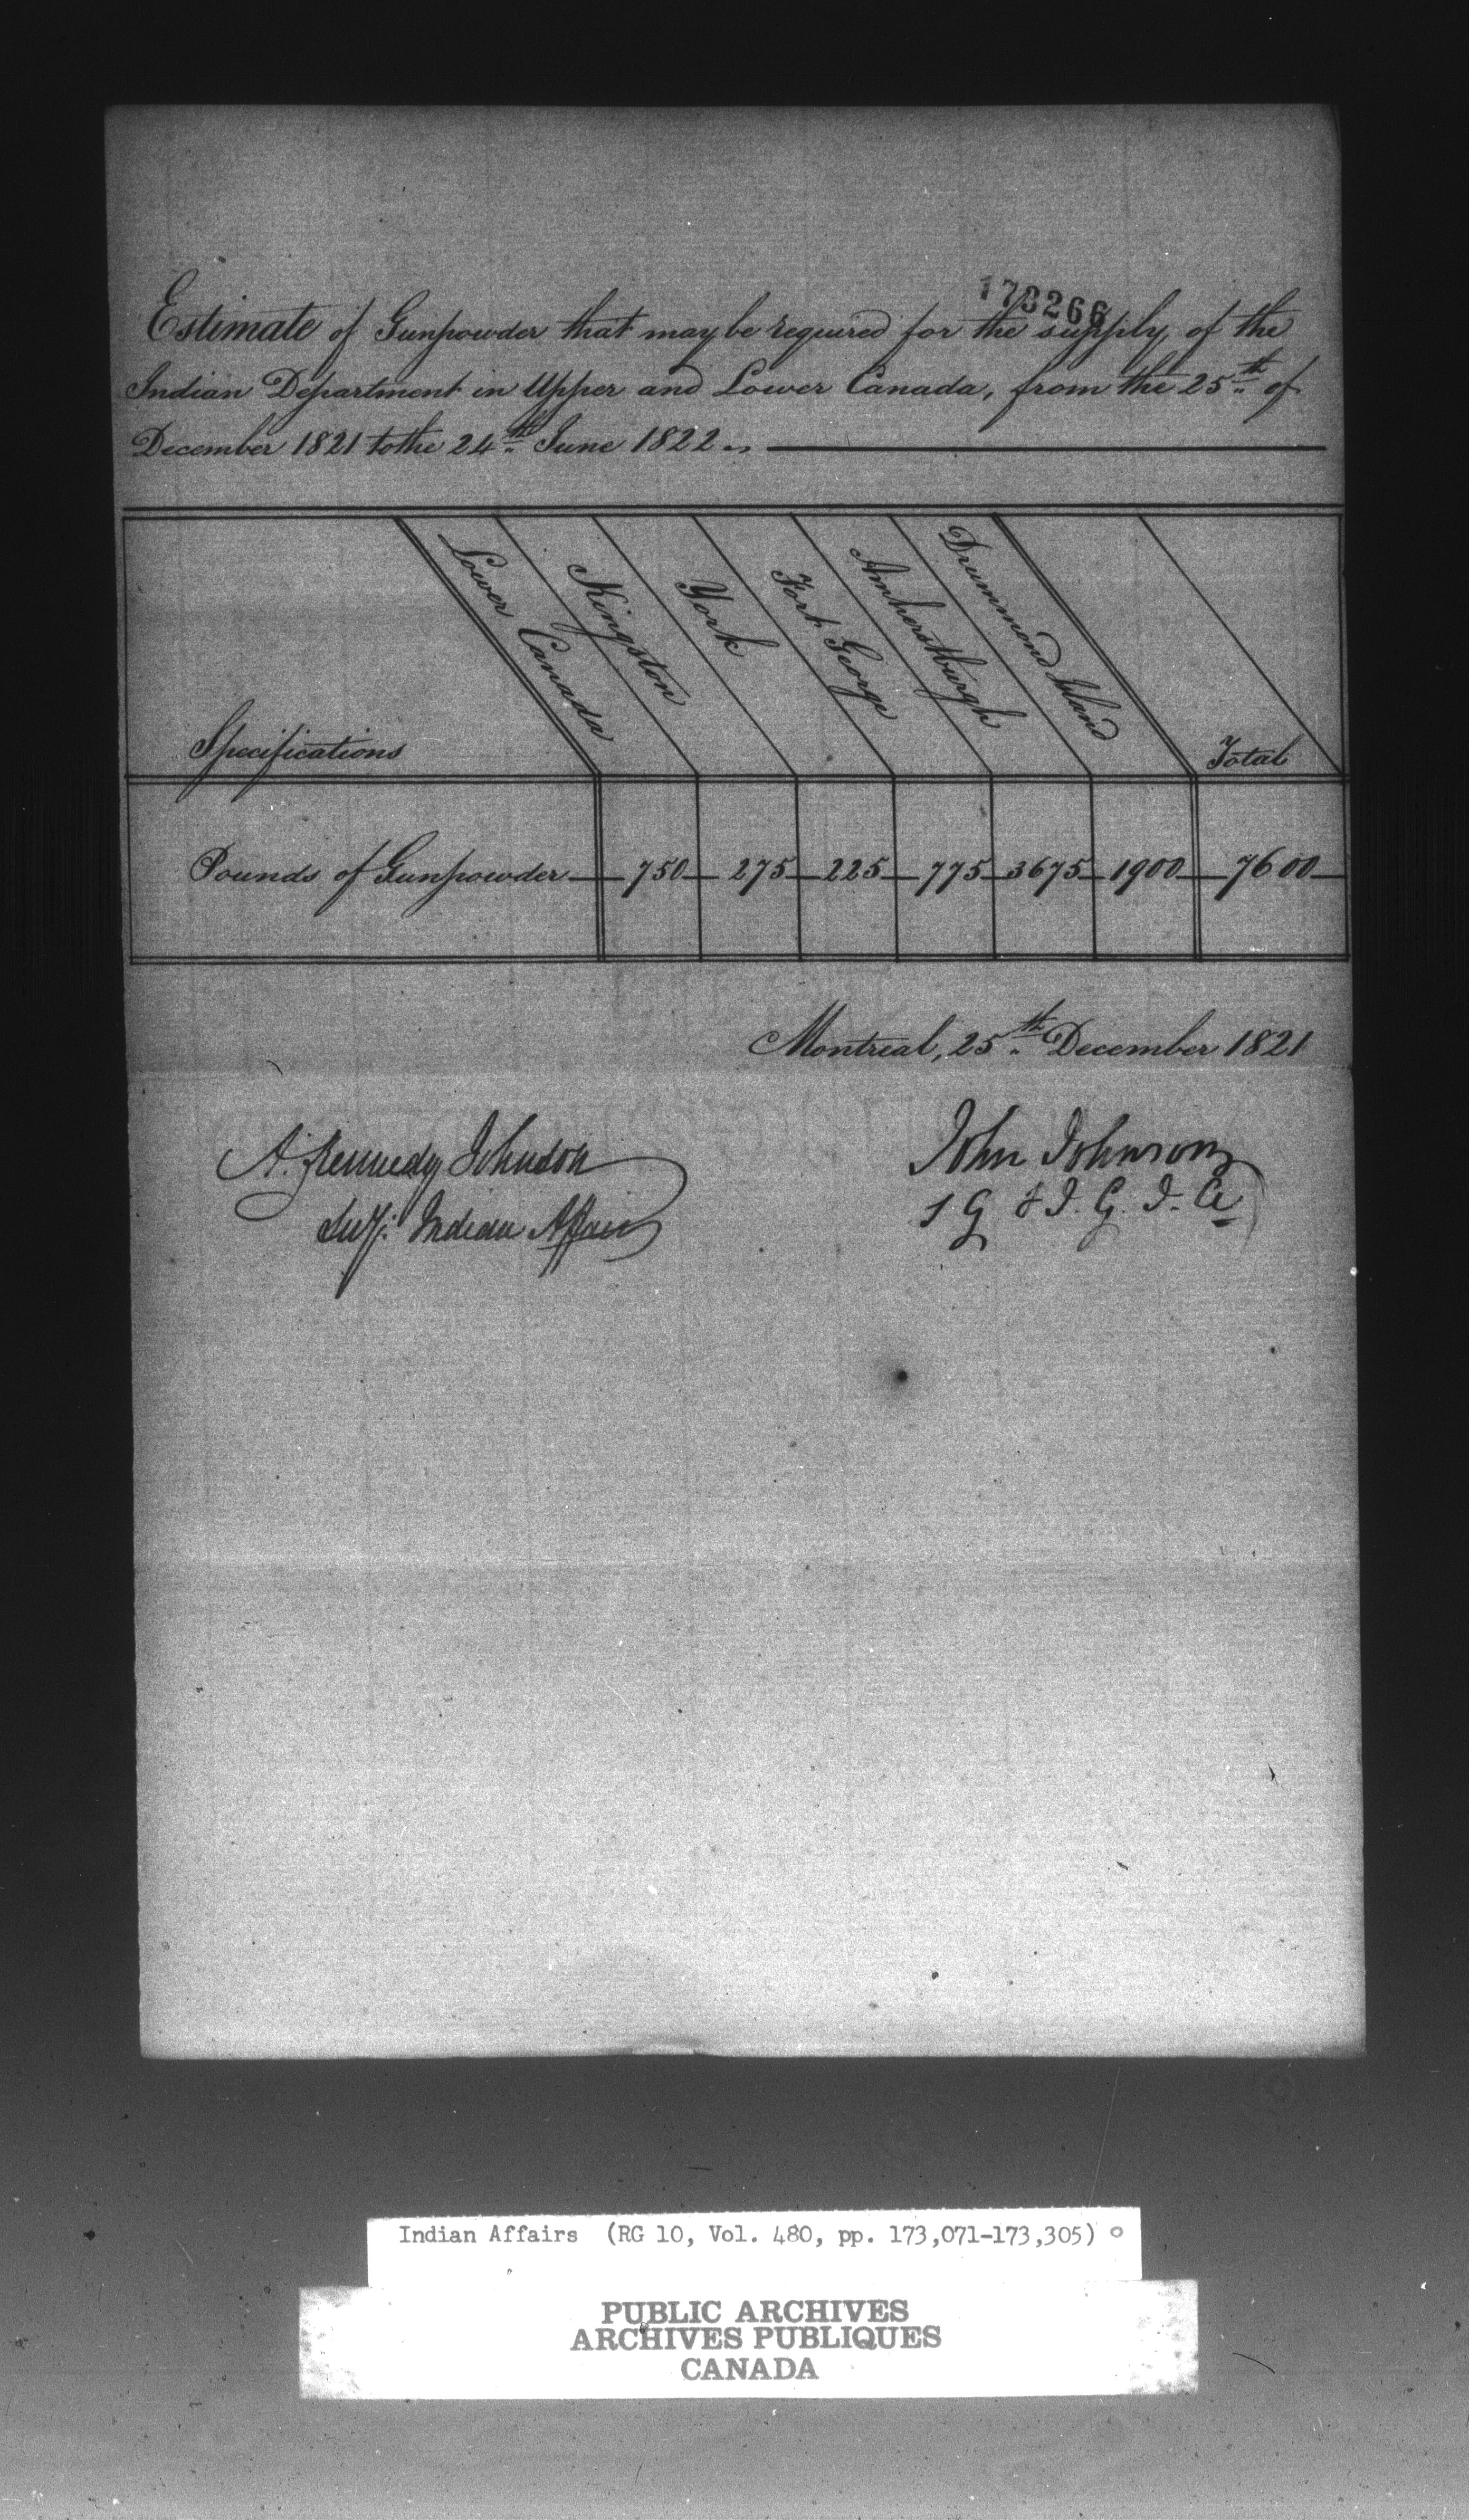 173266
Estimate of Gunpowder that may be required for the supply of the
Indian Department in Upper and Lower Canada, from the 25th of
December 1821 to the 24th June 1822.
Specifications
Lower Canada
Kingston
York
Fort George
Amherstburgh
Drummond Island
Total
Pounds of Gunpowder 750 275 225 775 3675 1900 7600
Montreal, 25th December 1821
A. Kennedy Johnson
Indian Affairs
John Johnson
S G & I. G. I. A
Indian Affairs (RG 10, Vol. 480, pp. 173,071-173,305)
PUBLIC ARCHIVES
ARCHIVES PUBLIQUES
CANADA